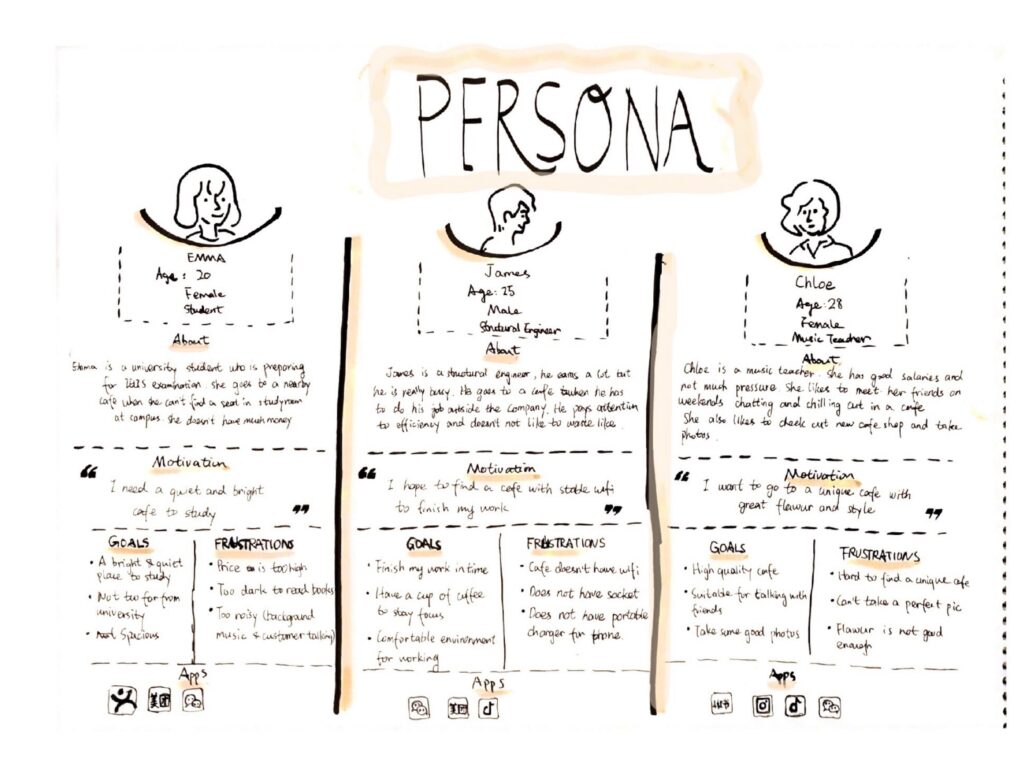 PERSONA
EMMA
Age : 20
Female
Student
About
Emma is a university student who is preparing
for IELTS examination she goes to a nearby
cafe when she can't find a seat in studyroom
at campus. she doesn't have much money
Motivation
“ I need a quiet and bright
cafe to study ”
GOALS
• A bright & quiet
place to study
• Not too far from
university
• Spacious
FRUSTRATIONS
• Price is too high
• Too dark to read books
• Too noisy (background
music & customer talking)
Apps
美团
James
Age: 25
Male
Structural Engineer
About
James is a structural engineer, he earns a lot but
he is really busy. He goes to a cafe when he has
to do his job outside the company. He pays attention
to efficiency and doesn't not like to waste
Motivation
“ I hope to find a cafe with stable wifi
to finish my work ”
GOALS
• Finish my work in time
• Have a cup of coffee
to stay focus
• Comfortable environment
for working
FRUSTRATIONS
• Cafe doesn't have wifi
• Does not have socket
• Does not have portable
charger for phone.
Apps
美团
Chloe
Age: 28
Female
Music Teacher
About
Chloe is a music teacher. She has good salaries and
not much pressure. She likes to meet her friends on
weekends chatting and chilling out in a cafe
She also likes to check out new cafe shop and take
photos.
Motivation
“ I want to go to a unique cafe with
great flavour and style ”
GOALS
• High quality cafe
• Suitable for talking with
friends
• Take some good photos
FRUSTRATIONS
• Hard to find a unique cafe
• Can't take a perfect pic
• Flavour is not good
enough
Apps